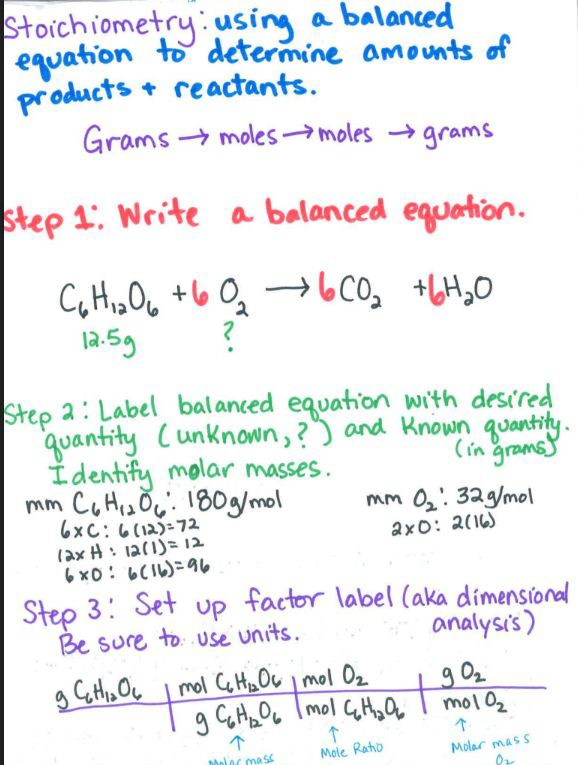 Stoichiometry: using a balanced
equation to determine amounts of
products + reactants.
Grams → moles → moles → grams
Step 1: Write a balanced equation.
C₆H₁₂O₆ + 6 O₂ → 6CO₂ + 6H₂O
12.5g ?
Step 2: Label balanced equation with desired
quantity (unknown, ?) and known quantity.
(in grams)
Identify molar masses.
mm C₆H₁₂O₆: 180g/mol mm O₂: 32g/mol
6xC: 6(12)=72 2xO: 2(16)
12xH: 12(1)=12
6xO: 6(16)=96
Step 3: Set up factor label (aka dimensional
analysis)
Be sure to use units.
g C₆H₁₂O₆ | mol C₆H₁₂O₆ | mol O₂ | g O₂
g C₆H₁₂O₆ | mol C₆H₁₂O₆ | mol O₂
↑ ↑ ↑
Molar mass Mole Ratio Molar mass
O₂